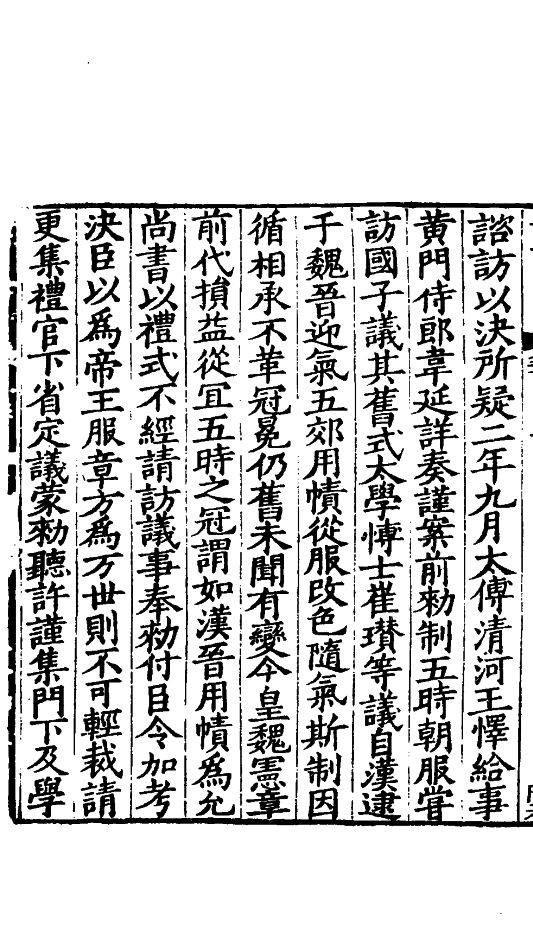 諮訪以決所疑二年九月太傅清河王懌給事
黄門侍郎韋延詳奏謹案前勑制五時朝服嘗
訪國子議其舊式太學愽士崔瓉等議自漢逮
于魏晉迎氣五郊用幘從服改色隨氣斯制因
循相承不革冠冕仍舊未聞有變今皇魏憲章
前代損益從冝五時之冠謂如漢晉用幘爲允
尚書以禮式不經請訪議事奉勑付臣令加考
決臣以爲帝王服章方爲万世則不可輕裁請
更集禮官下省定議蒙勑聽許謹集門下及學